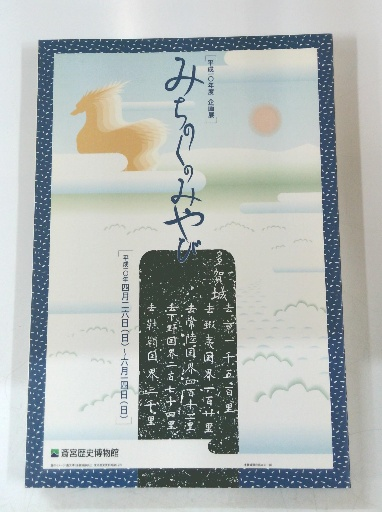 平成一〇年度 企画展
みちのくのみやび
多賀城
去京一千五百里
去蝦夷国界一百廿里
去常陸国界四百十二里
去下野国界二百七十四里
去靺鞨国界三千里
平成一〇年 四月二六日(日)〜六月一四日(日)
斎宮歴史博物館